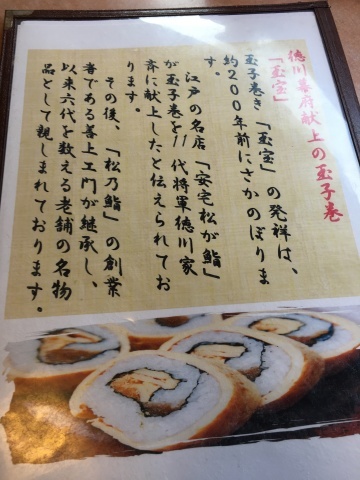 徳川幕府献上の玉子巻
「玉宝」
玉子巻き「玉宝」の発祥は、
約200年前にさかのぼりま
す。
江戸の名店「安宅松が鮨」
が玉子巻を11代将軍徳川家
斉に献上したと伝えられてお
ります。
その後、「松乃鮨」の創業
者である善上エ門が継承し、
以来六代を数える老舗の名物
品として親しまれております。